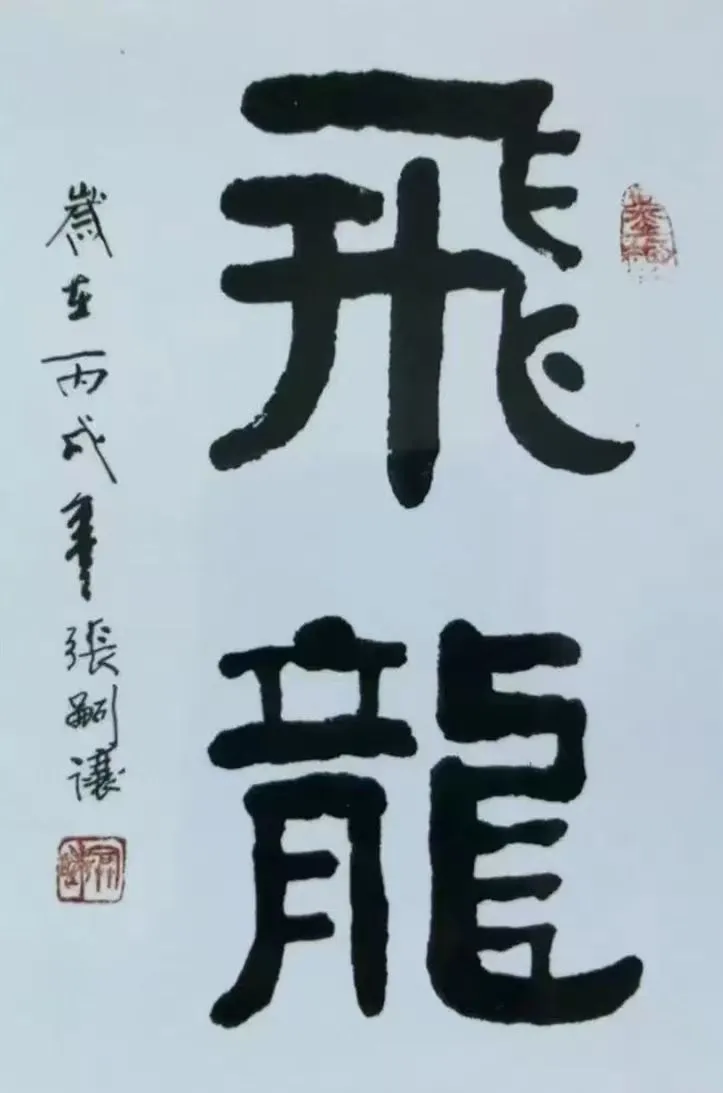 飛龍
歲在丙戌年張嗣讓